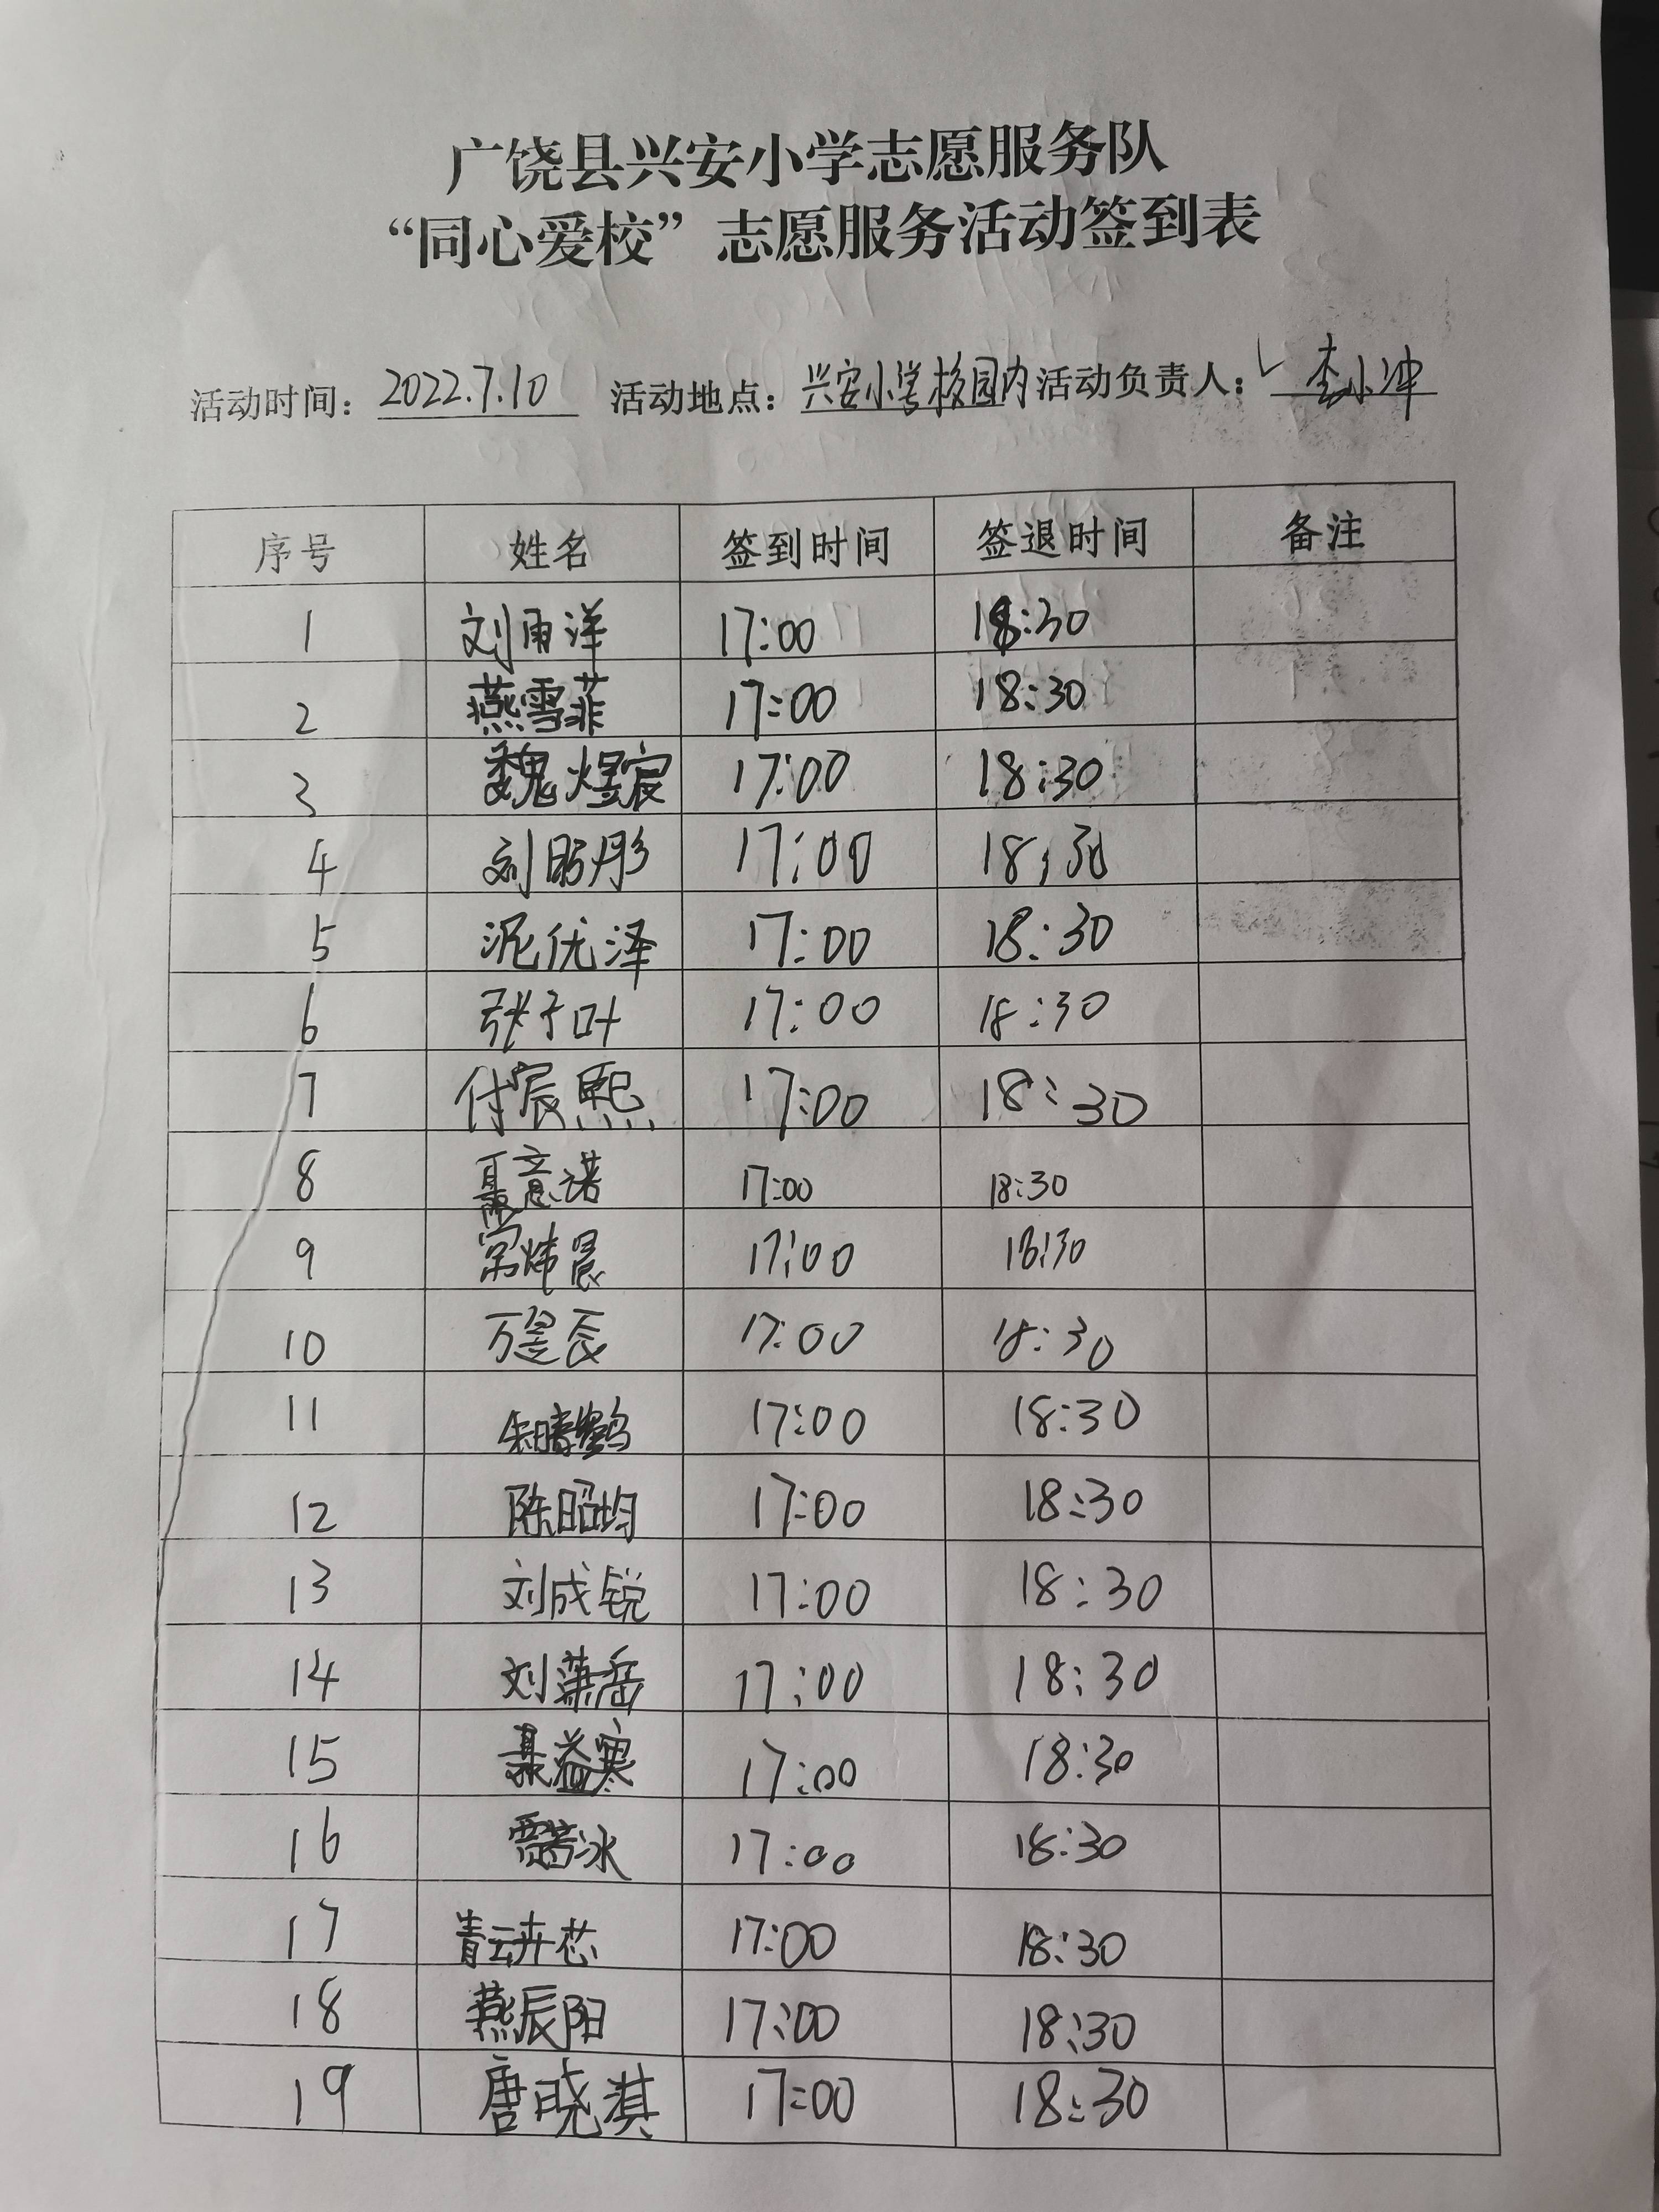 广饶县兴安小学志愿服务队
“同心爱校”志愿服务活动签到表
活动时间：2022.7.10 活动地点：兴安小学校园内 活动负责人：李小冲
序号 姓名 签到时间 签退时间 备注
1 刘雨洋 17:00 18:30
2 燕雪菲 17:00 18:30
3 魏煜宸 17:00 18:30
4 刘昉彤 17:00 18:30
5 泥优泽 17:00 18:30
6 张于叶 17:00 18:30
7 付宸熙 17:00 18:30
8 聂意诺 17:00 18:30
9 宋炜晨 17:00 18:30
10 万昱辰 17:00 18:30
11 朱晴鹤 17:00 18:30
12 陈昭均 17:00 18:30
13 刘成锐 17:00 18:30
14 刘萧岳 17:00 18:30
15 聂益寒 17:00 18:30
16 冰 17:00 18:30
17 青云卉芯 17:00 18:30
18 燕辰阳 17:00 18:30
19 唐晓淇 17:00 18:30